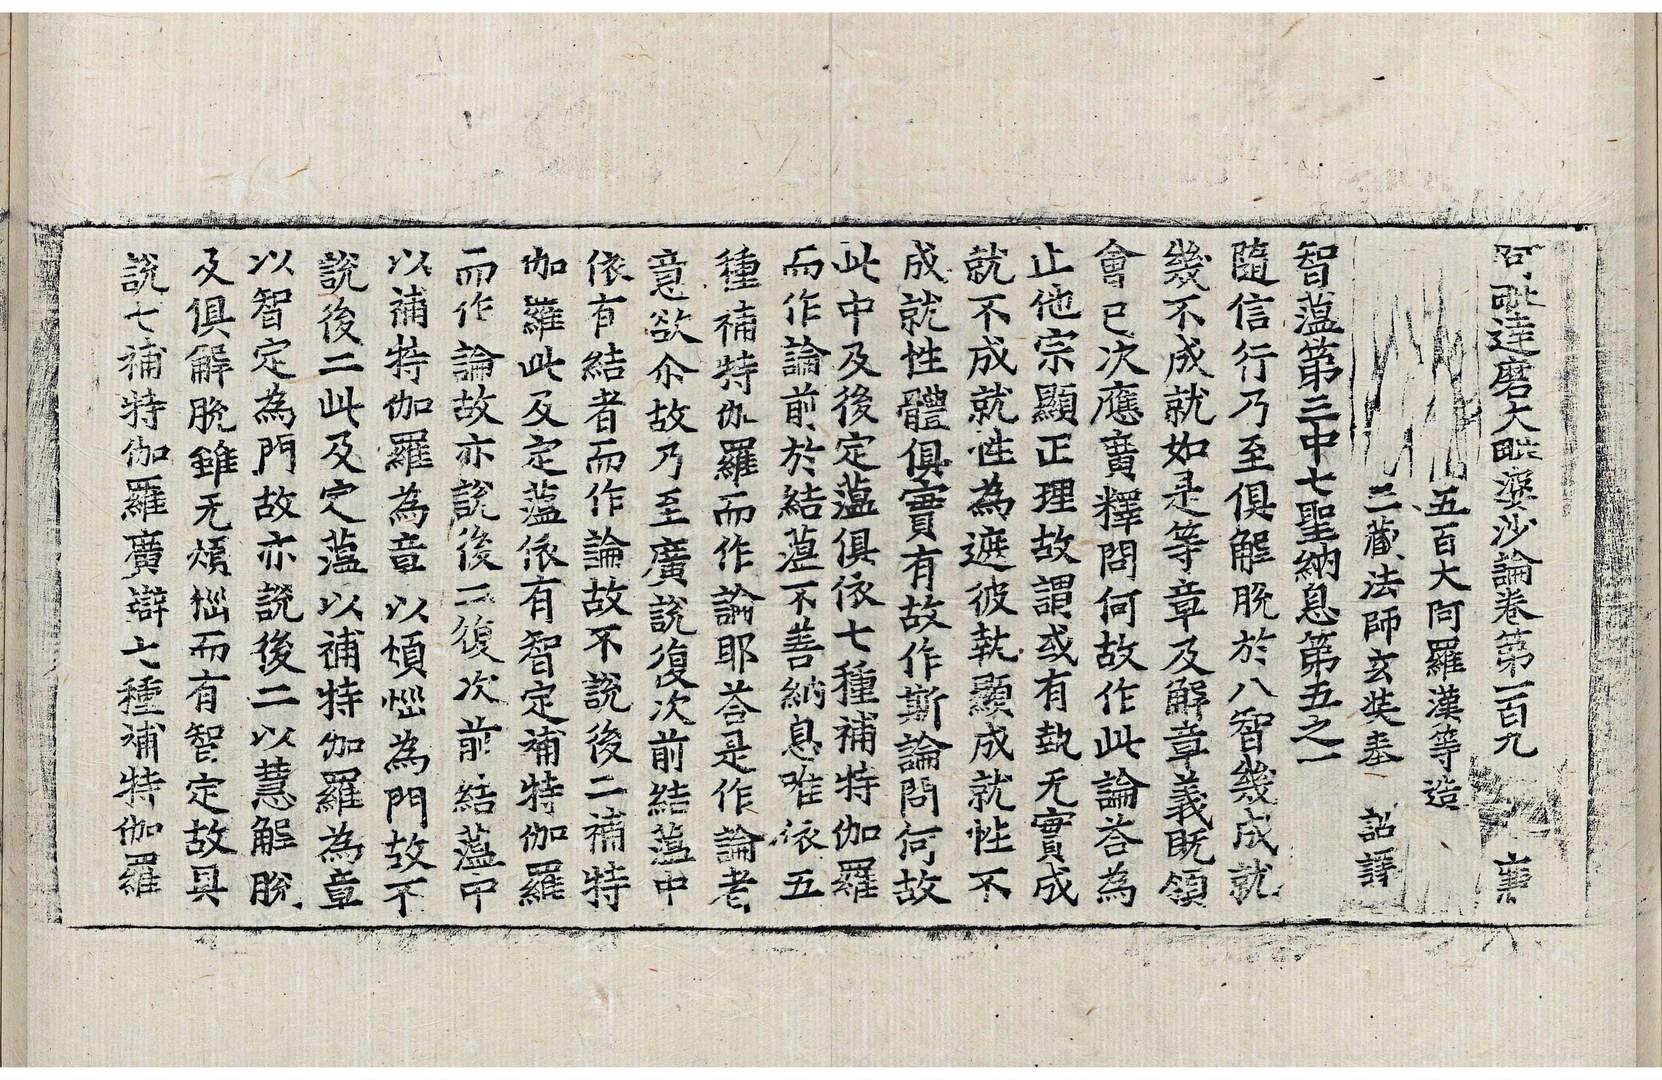 阿毗達磨大毗婆沙論卷第一百九　事
五百大阿羅漢等造
三藏法師玄奘奉　詔譯
智蘊第三中七聖納息第五之一
隨信行乃至俱解脫於八智幾成就
幾不成就如是等章及解章義旣領
會已次應廣釋問何故作此論荅為
止他宗顯正理故謂或有執无實成
就不成就性為遮彼執顯成就性不
成就性體俱實有故作斯論問何故
此中及後定蘊俱依七種補特伽羅
而作論前於結蘊不善納息唯依五
種補特伽羅而作論耶荅是作論者
意欲尒故乃至廣說復次前結蘊中
依有結者而作論故不說後二補特
伽羅此及定蘊依有智定補特伽羅
而作論故亦說後二復次前結蘊中
以補特伽羅為章以煩惱為門故不
說後二此及定蘊以補特伽羅為章
以智定為門故亦說後二以慧解脫
及俱解脫雖无煩惱而有智定故具
說七補特伽羅廣辯七種補特伽羅